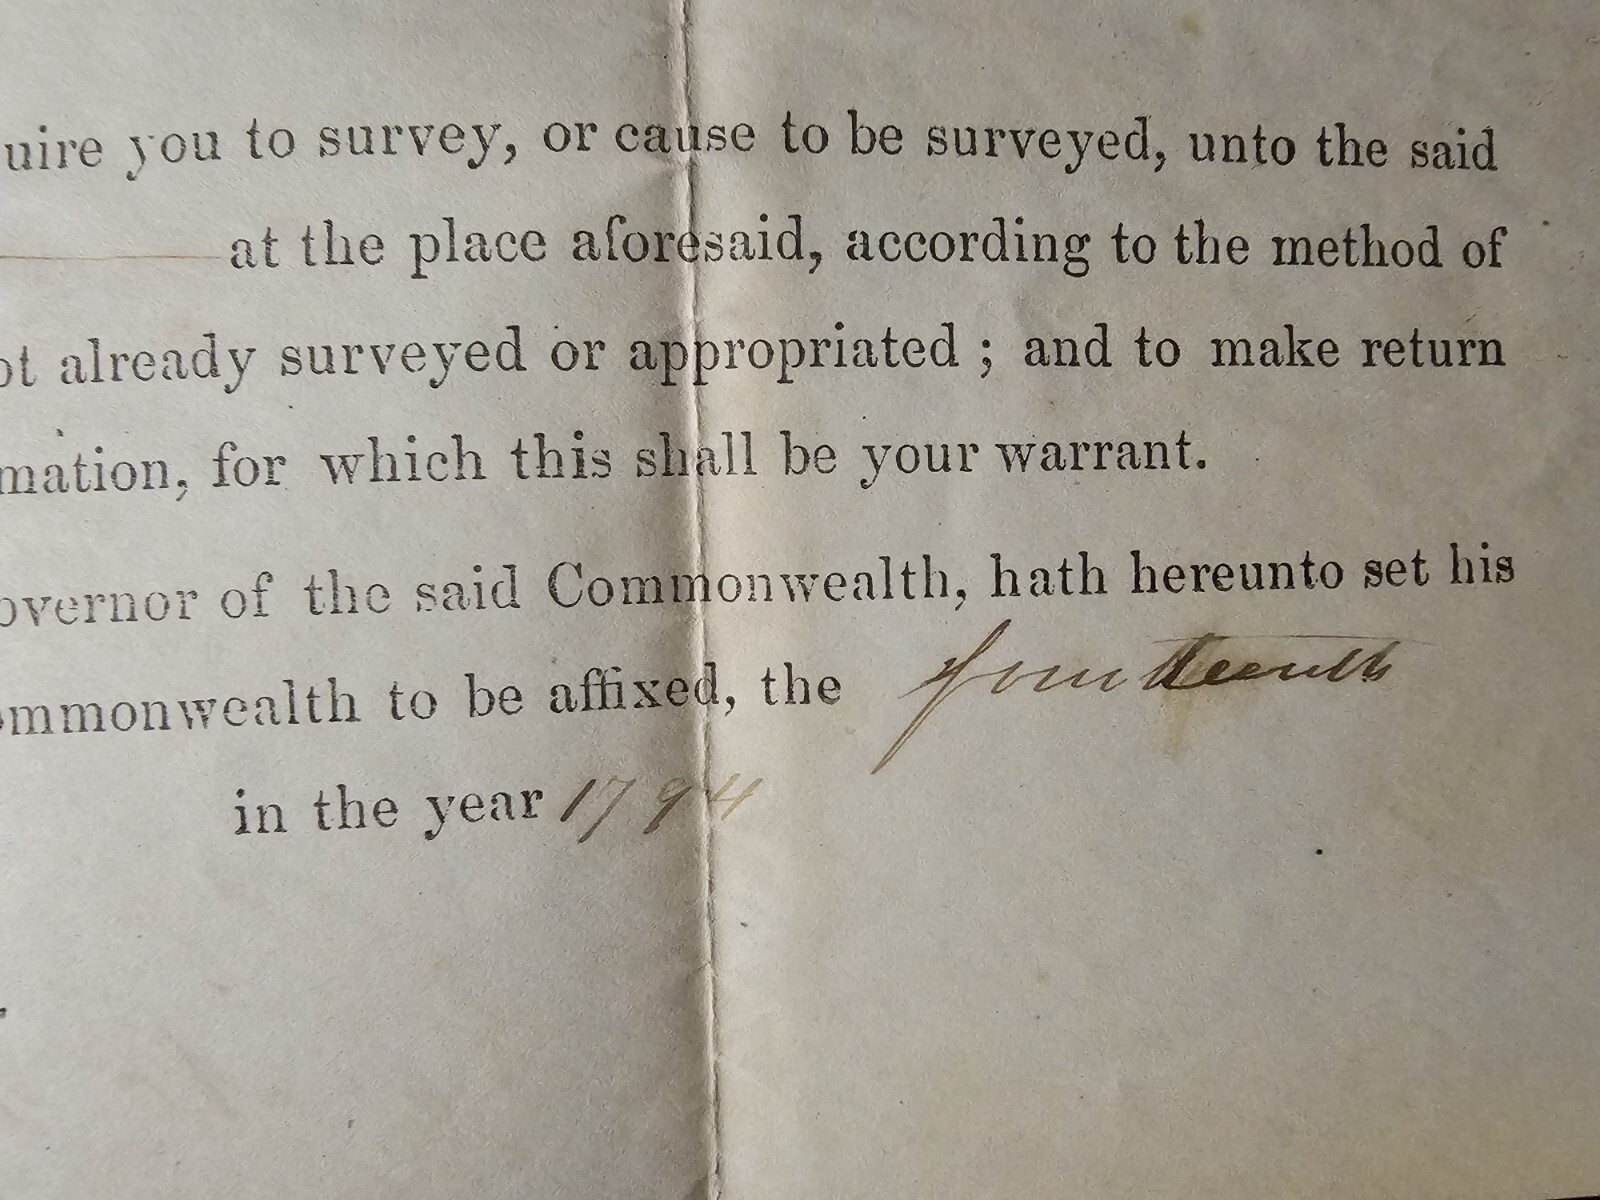 uire you to survey, or cause to be surveyed, unto the said
at the place aforesaid, according to the method of
ot already surveyed or appropriated ; and to make return
mation, for which this shall be your warrant.
overnor of the said Commonwealth, hath hereunto set his
ommonwealth to be affixed, the fourteenth
in the year 1794